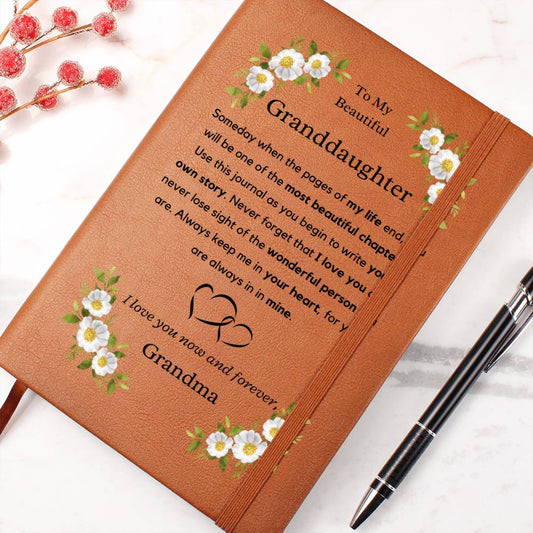 To My
Beautiful
Granddaughter
Someday when the pages of my life end,
will be one of the most beautiful chapte
Use this journal as you begin to write yo
own story. Never forget that I love you
never lose sight of the wonderful person
are. Always keep me in your heart, for y
are always in in mine.
I love you now and forever,
Grandma